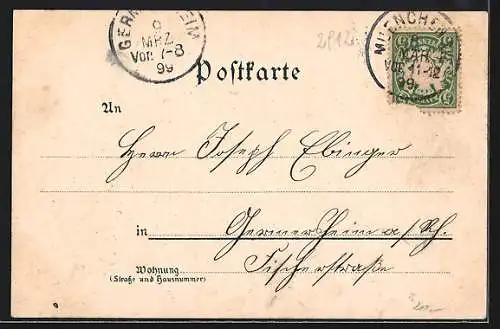 GERMERSHEIM
9
MRZ.
Vor. 7-8
99
MUENCHEN
Postkarte
An
Herrn Joseph Ebinger
in Germersheim a/Rh.
Wohnung Fischerstraße
(Straße und Hausnummer)